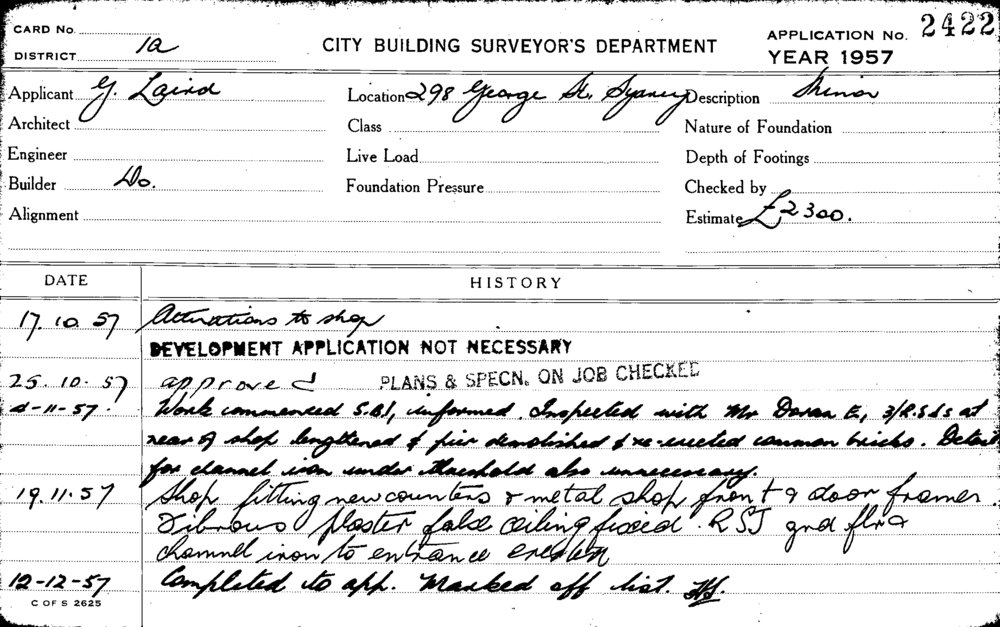 CARD No.
DISTRICT 1a
CITY BUILDING SURVEYOR'S DEPARTMENT
APPLICATION No. 2422
YEAR 1957
Applicant G. Laird Location 298 George St. Sydney Description Minor
Architect Class Nature of Foundation
Engineer Live Load Depth of Footings
Builder Do. Foundation Pressure Checked by
Alignment Estimate £2300.
DATE HISTORY
17.10.57 Alterations to shop
DEVELOPMENT APPLICATION NOT NECESSARY
25.10.57 approved PLANS & SPECN. ON JOB CHECKED
4-11-57. Work commenced S.B.I, informed. Inspected with Mr Doran E, 3/R.S.Js at
rear of shop lengthened & pier demolished & re-erected common bricks. Detail
for channel iron under threshold also unnecessary.
19.11.57 Shop fitting new counters & metal shop front & door frames.
Fibrous plaster false ceiling fixed. RSJ grd flr &
channel iron to entrance erected
12-12-57 Completed to app. Marked off list.
C OF S 2625